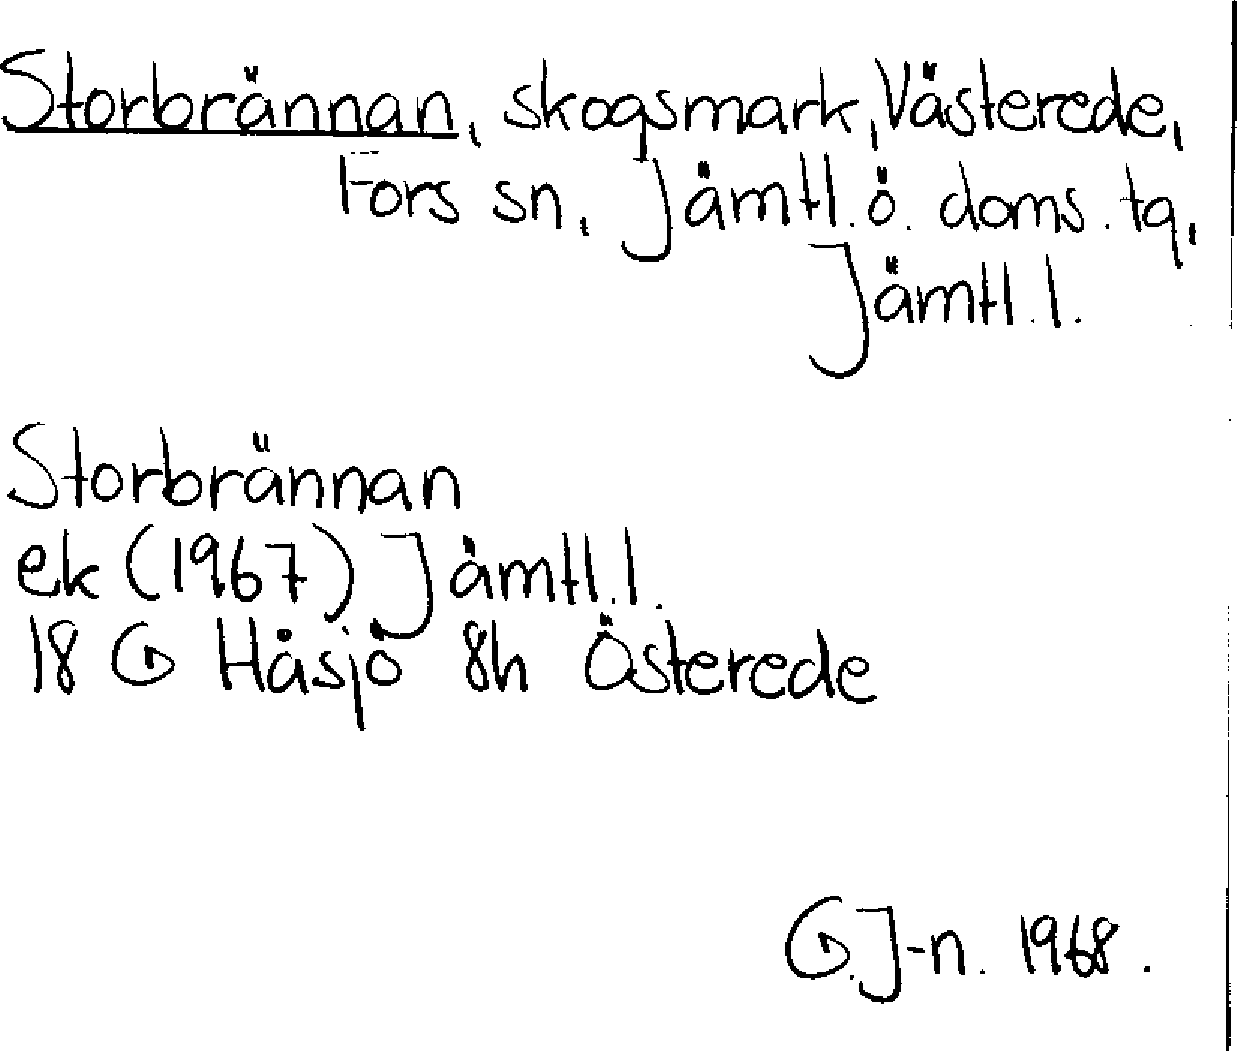 Storbrännan, skogsmark, Västerede,
Fors sn, Jämtl. ö. doms. tg,
Jämtl. l.
Storbrännan
ek (1967) Jämtl. l.
18 G Håsjö 8h Österede
G. J-n. 1968.